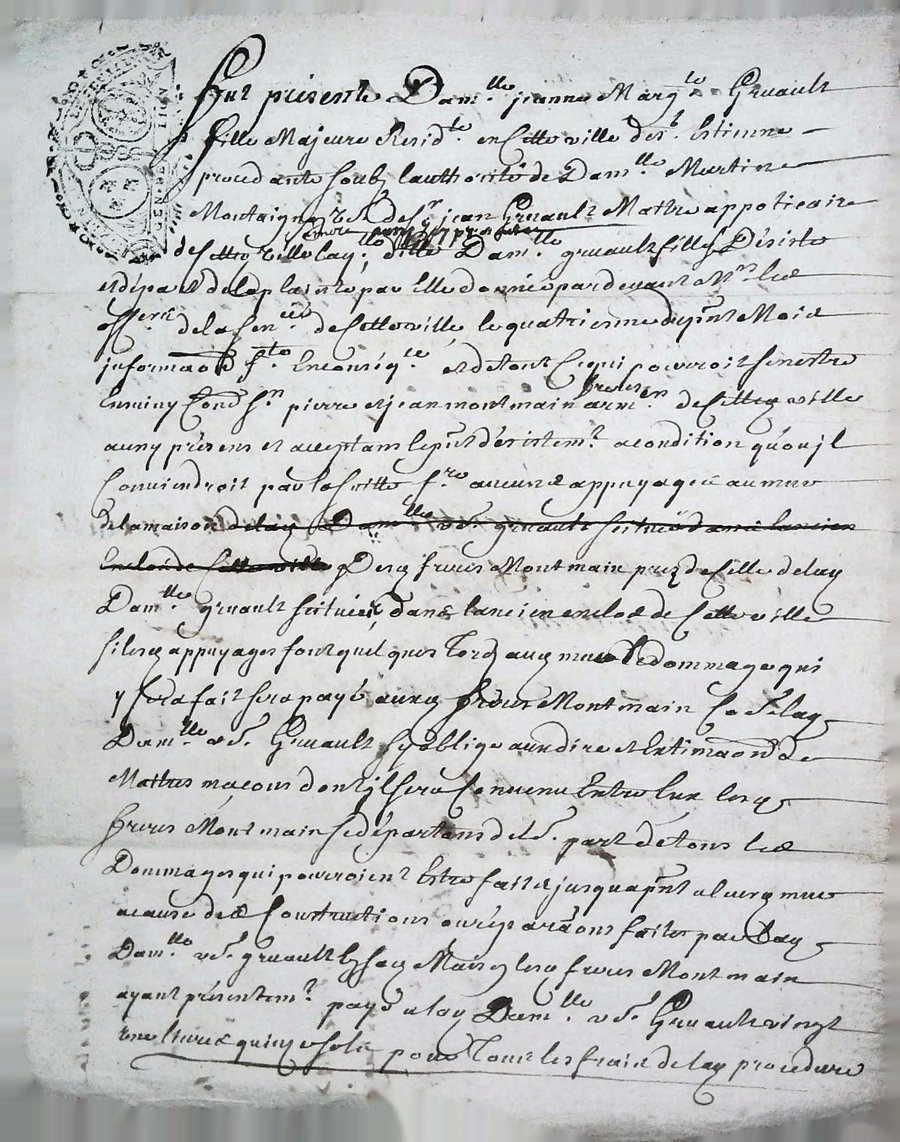 Fut présente Dam.lle jeanne Marg.te Gruault
fille Majeure Resid.te en Cette ville de s.t Estienne
procedante soubz l'authorité de Dam.lle Martine
Montaigne v.e de s.r jean Gruault Maitre appoticaire
de cette ville lad. dite Dam.lle gruault fille s'Désiste
et départ de la plainte par Elle donnée pardevant M.rs les
off.ers de la Sen.cée de Cette ville le quatrienne du p.nt Mois
jnformaon f.te Enconséq.ce et de tout Ce qui pourroit s'enestre
Ensuivy Cond s.rs pierre et jean montmain frères arm.rs de Cetted ville
aussy présens et acceptans le p.nt désistem.t a condition qu'ou jl
Conviendroit par la suitte f.re aucuns appuyages au mur
de la maison de lad Dam.lle v.e gruault scituée dans l'ancien
Enclos de Cette ville Desd freres Montmain près de Celle de lad
Dam.lle gruault scituées dans l'ancien enclos de Cette ville
si lesd appuyages font quelques Tord aud mur le dommage qui
y sera fait sera payé auxd freres Montmain Ce Lad
Dam.lle v.e Gruault s'y oblige au dire et Estimaon de
Maitres maçons dont jl sera Convenu Entre Eux lesd
freres Montmain se départans de l.r part de tous les
Dommages qui pourroient Estre faits jusqua p.nt aleurd mur
acause des Constructions ou réparaons faites par Lad
Dam.lle v.e gruault En sad Maison lesd freres Montmain
ayant présentem.t payé a lad Dam.lle v.e Gruault vingt
une livres quinze sols pour Tous les frais de lad procedure